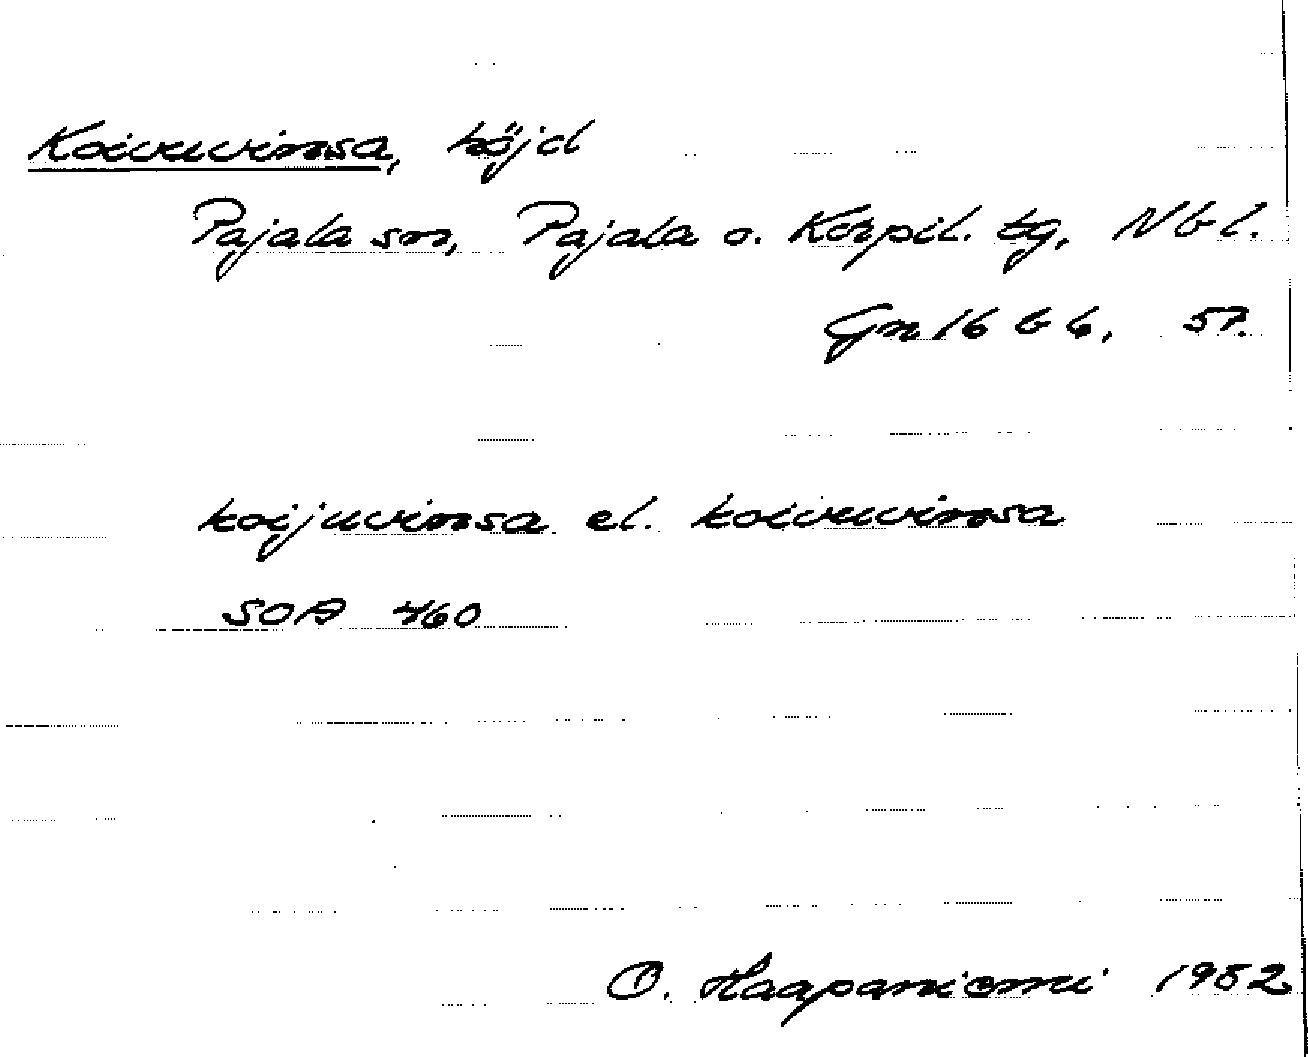 Koivuvinsa, höjd
Pajala sn, Pajala o. Korpil. tg, Nbl.
Gn 16 b 6, 57.
koijuvinsa el. koivuvinsa
SOA 460
O. Haapaniemi 1952